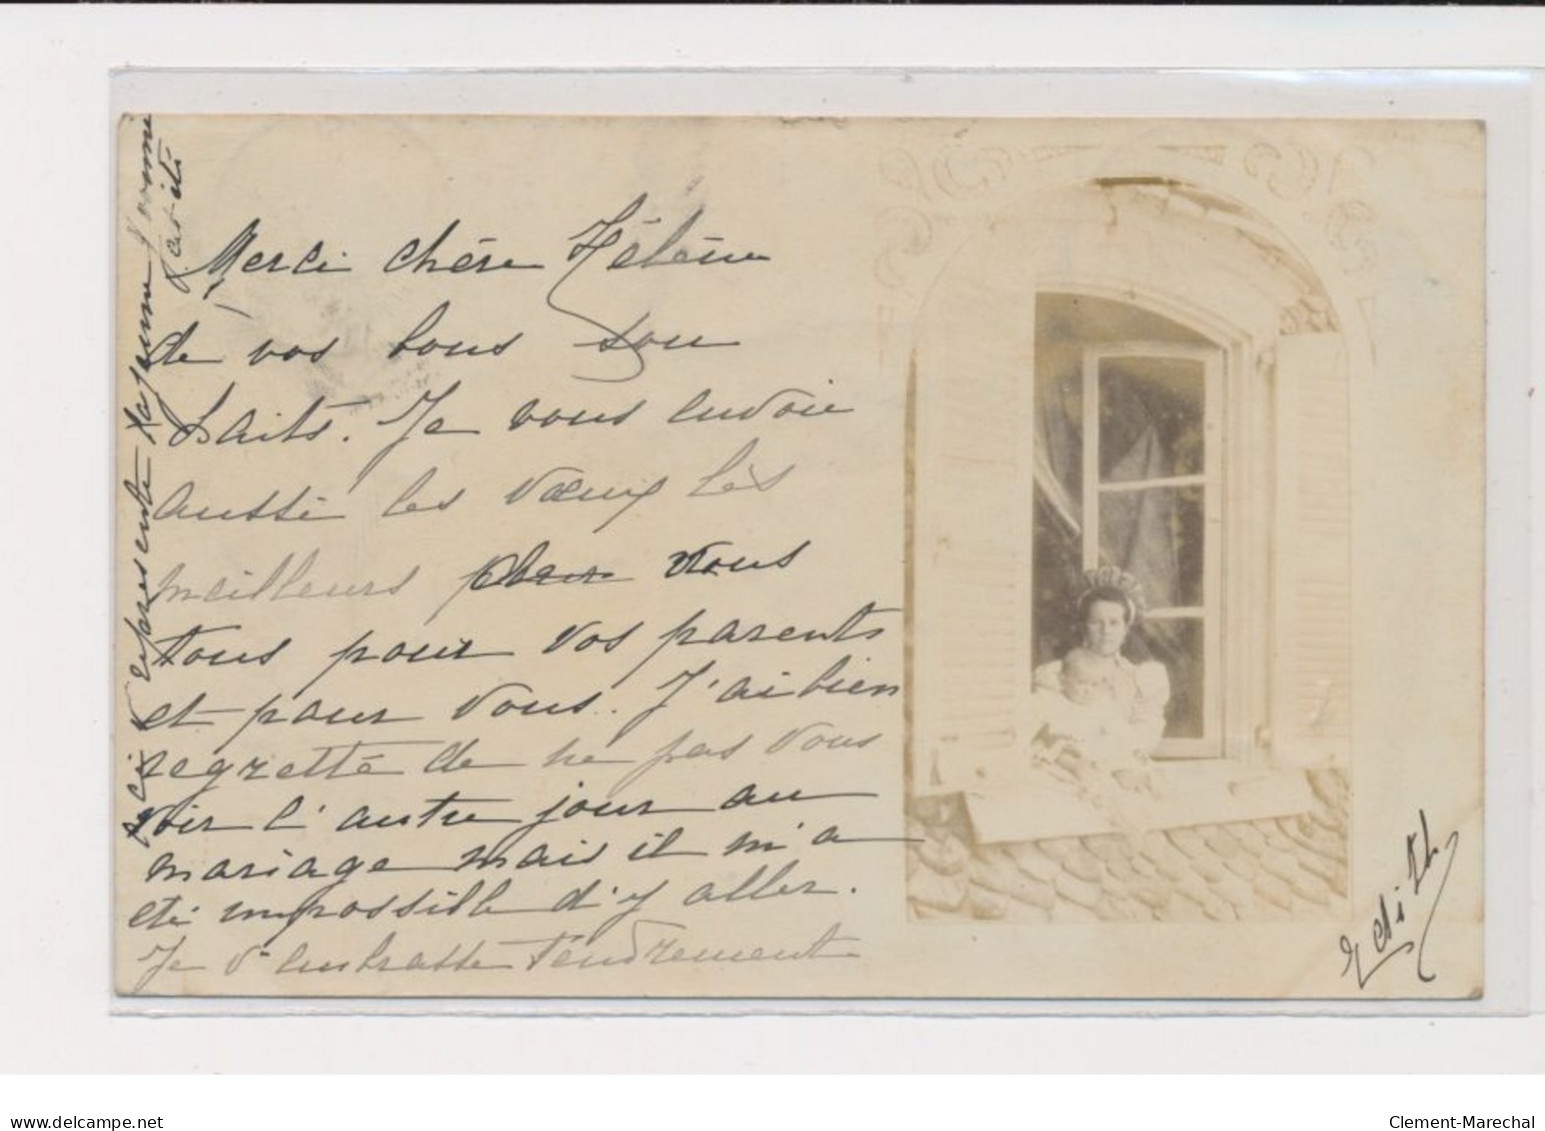 Merci chère Hélène
de vos bons sou
haits. Je vous envoie
aussi les vœux les
meilleurs pour vous
tous pour vos parents
et pour vous. J'ai bien
regretté de ne pas vous
voir l'autre jour au
mariage mais il m'a
été impossible d'y aller.
Je v embrasse tendrement
Edith
ceci v représente la femme
www.delcampe.net
Clement-Marechal